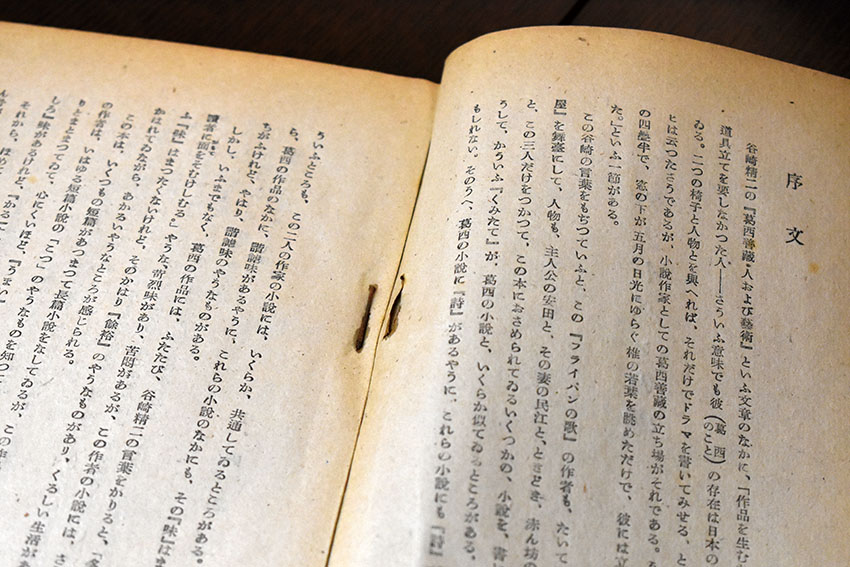 序文
谷崎精二の『葛西善藏・人および藝術』といふ文章のなかに、「作品を生む
道具立てを要しなかつた人――さういふ意味でも彼（葛西のこと）の存在は日本の
ゐる。二つの椅子と人物とを與へれば、それだけでドラマを書いてみせる、と
は云つたさうであるが、小説作家としての葛西善藏の立ち場がそれである。
の四疊半で、窓の下が五月の日光にゆらぐ椎の若葉を眺めただけで、彼には立
た。」といふ一節がある。
この谷崎の言葉をもぢつていふと、この『フライパンの歌』の作者も、たいて
屋』を舞臺にして、人物も、主人公の安田と、その妻の民江と、ときどき、赤ん坊の
と、この三人だけをつかつて、この本におさめられてゐるいくつかの、小説を、書い
うして、かういふ『くみたて』が、葛西の小説と、いくらか似てゐるところがある。
もしれない。そのうへ、葛西の小説に『詩』があるやうに、これらの小説にも『詩』
ういふところも、この二人の作家の小説には、いくらか、共通してゐるところがある。
ら、葛西の作品のなかに、諧謔味があるやうに、これらの小説のなかにも、その『味』はま
ちがふけれど、やはり、諧謔味のやうなものがある。
しかし、いふまでもなく、葛西の作品には、ふたたび、谷崎精二の言葉をかりると、「
讀者に面をそむけしむる」やうな、苦烈味があり、苦悶があるが、この作者の小説には、さ
ふ『味』はまつたくないけれど、そのかはり『餘裕』のやうなものがあり、くるしい生活が
かはれてゐながら、あかるいやうなところが感じられる。
この本は、いくつもの短篇があつまつて長篇小説をなしてゐるが、この
の作者は、いはゆる短篇小説の「こつ」のやうなものを知つて
りとまとまつてゐて、心にくいほど、『うまい』
しろ味があるけれど、『かるい』
それから、ほめて